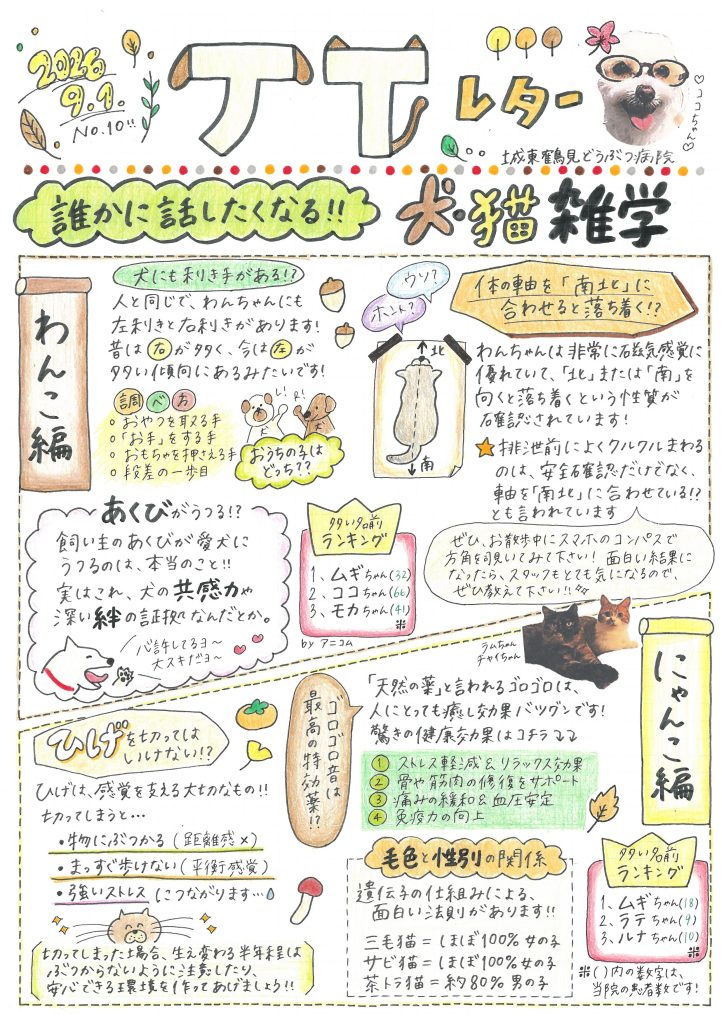 2026
9.1.
No.10!!
TTレター
♡ココちゃん♡
城東鶴見どうぶつ病院
誰かに話したくなる!!
犬・猫雑学
わんこ編
犬にも利き手がある!?
人と同じで、わんちゃんにも
左利きと右利きがあります!
昔は右が多く、今は左が
多い傾向にあるみたいです!
調べ方
○おやつを取る手
○「お手」をする手
○おもちゃを押さえる手
○段差の一歩目
L!
R!
おうちの子は
どっち??
ウソ?
ホント?
北
南
体の軸を「南北」に
合わせると落ち着く!?
わんちゃんは非常に磁気感覚に
優れていて、「北」または「南」を
向くと落ち着くという性質が
確認されています!
★排泄前によくクルクルまわる
のは、安全確認だけでなく、
軸を「南北」に合わせている!?
とも言われています
ぜひ、お散歩中にスマホのコンパスで
方角を覗いてみて下さい! 面白い結果に
なったら、スタッフもとても気になるので、
ぜひ教えて下さい!!
あくびがうつる!?
飼い主のあくびが愛犬に
うつるのは、本当のこと!!
実はこれ、犬の共感力や
深い絆の証拠なんだとか。
心許してるヨ〜
大スキだヨ〜
多い名前
ランキング
1、ムギちゃん(32)
2、ココちゃん(66)
3、モカちゃん(41)
※
by アニコム
ラムちゃん
チャイちゃん
にゃんこ編
ひげを切っては
いけない!?
ひげは、感覚を支える大切なもの!!
切ってしまうと…
・物にぶつかる(距離感×)
・まっすぐ歩けない(平衡感覚)
・強いストレスにつながります…
切ってしまった場合、生え変わる半年程は
ぶつからないように注意したり、
安心できる環境を作ってあげましょう!!
ゴロゴロ音は
最高の特効薬!?
「天然の薬」と言われるゴロゴロは、
人にとっても癒し効果バツグンです!
驚きの健康効果はコチラココ
① ストレス軽減&リラックス効果
② 骨や筋肉の修復をサポート
③ 痛みの緩和&血圧安定
④ 免疫力の向上
毛色と性別の関係
遺伝子の仕組みによる、
面白い法則があります!!
三毛猫=ほぼ100%女の子
サビ猫=ほぼ100%女の子
茶トラ猫=約80%男の子
多い名前
ランキング
1、ムギちゃん(18)
2、ラテちゃん(9)
3、ルナちゃん(10)
※
※( )内の数字は、
当院の患者数です!